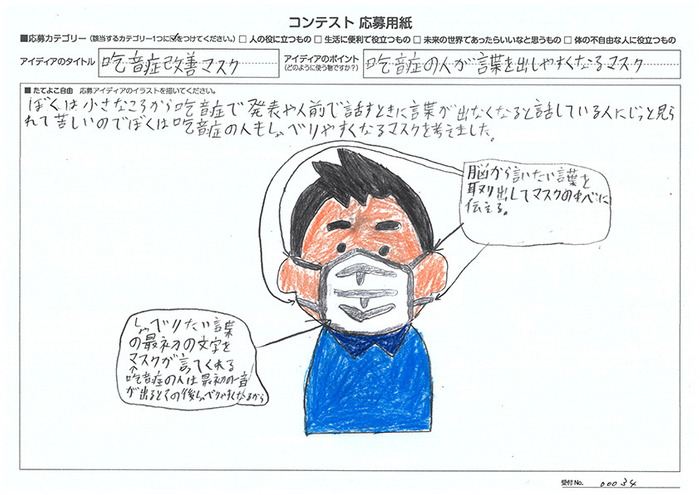 コンテスト 応募用紙
■応募カテゴリー(該当するカテゴリー1つに☑をつけてください。) □ 人の役に立つもの □ 生活に便利で役立つもの □ 未来の世界であったらいいなと思うもの □ 体の不自由な人に役立つもの
アイディアのタイトル 吃音症改善マスク
アイディアのポイント (どのように使う物ですか?) 吃音症の人が言葉を出しやすくなるマスク
■たてよこ自由 応募アイディアのイラストを描いてください。
ぼくは小さなころから吃音症で発表や人前で話すときに言葉が出なくなると話している人にじっと見ら
れて苦しいのでぼくは吃音症の人もしゃべりやすくなるマスクを考えました。
脳から言いたい言葉を
取り出してマスクの
伝える。
しゃべりたい言葉
の最初の文字を
マスクが言ってくれる
吃音症の人は最初の一音
が出るとその後しゃべりやすくなるから
受付No. 00034